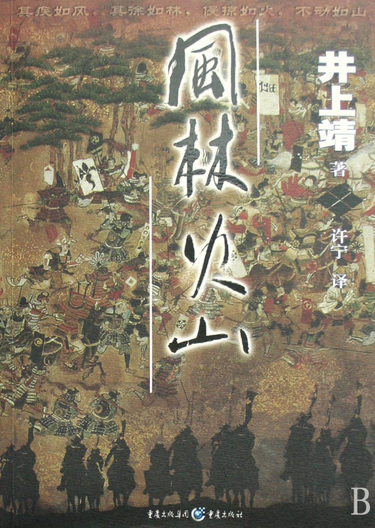 其疾如风，其徐如林，侵掠如火，不动如山
風林火山
井上靖
著
许宁 译
重庆出版集团 重庆出版社
B